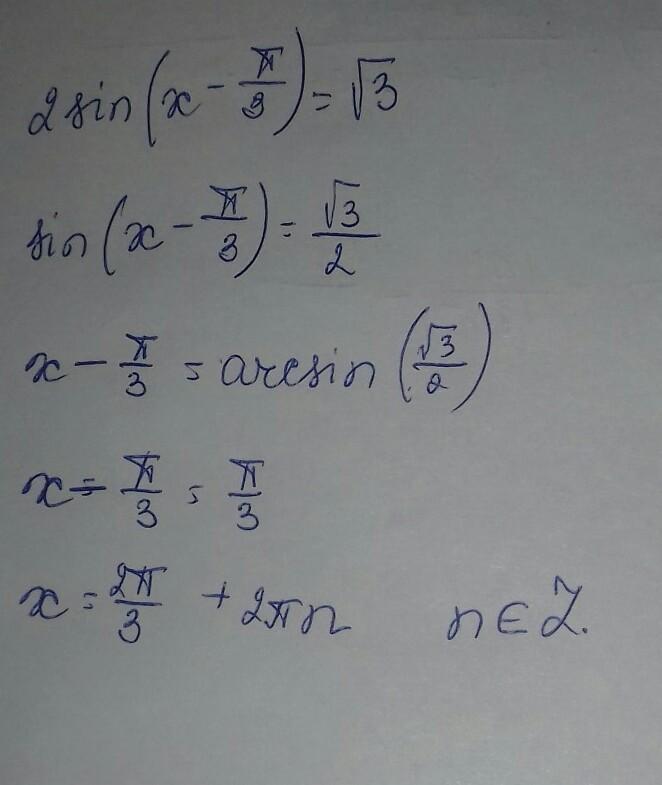 2sin(x - π/3) = √3
sin(x - π/3) = √3/2
x - π/3 = arcsin(√3/2)
x - π/3 = π/3
x = 2π/3 + 2πn n ∈ Z.